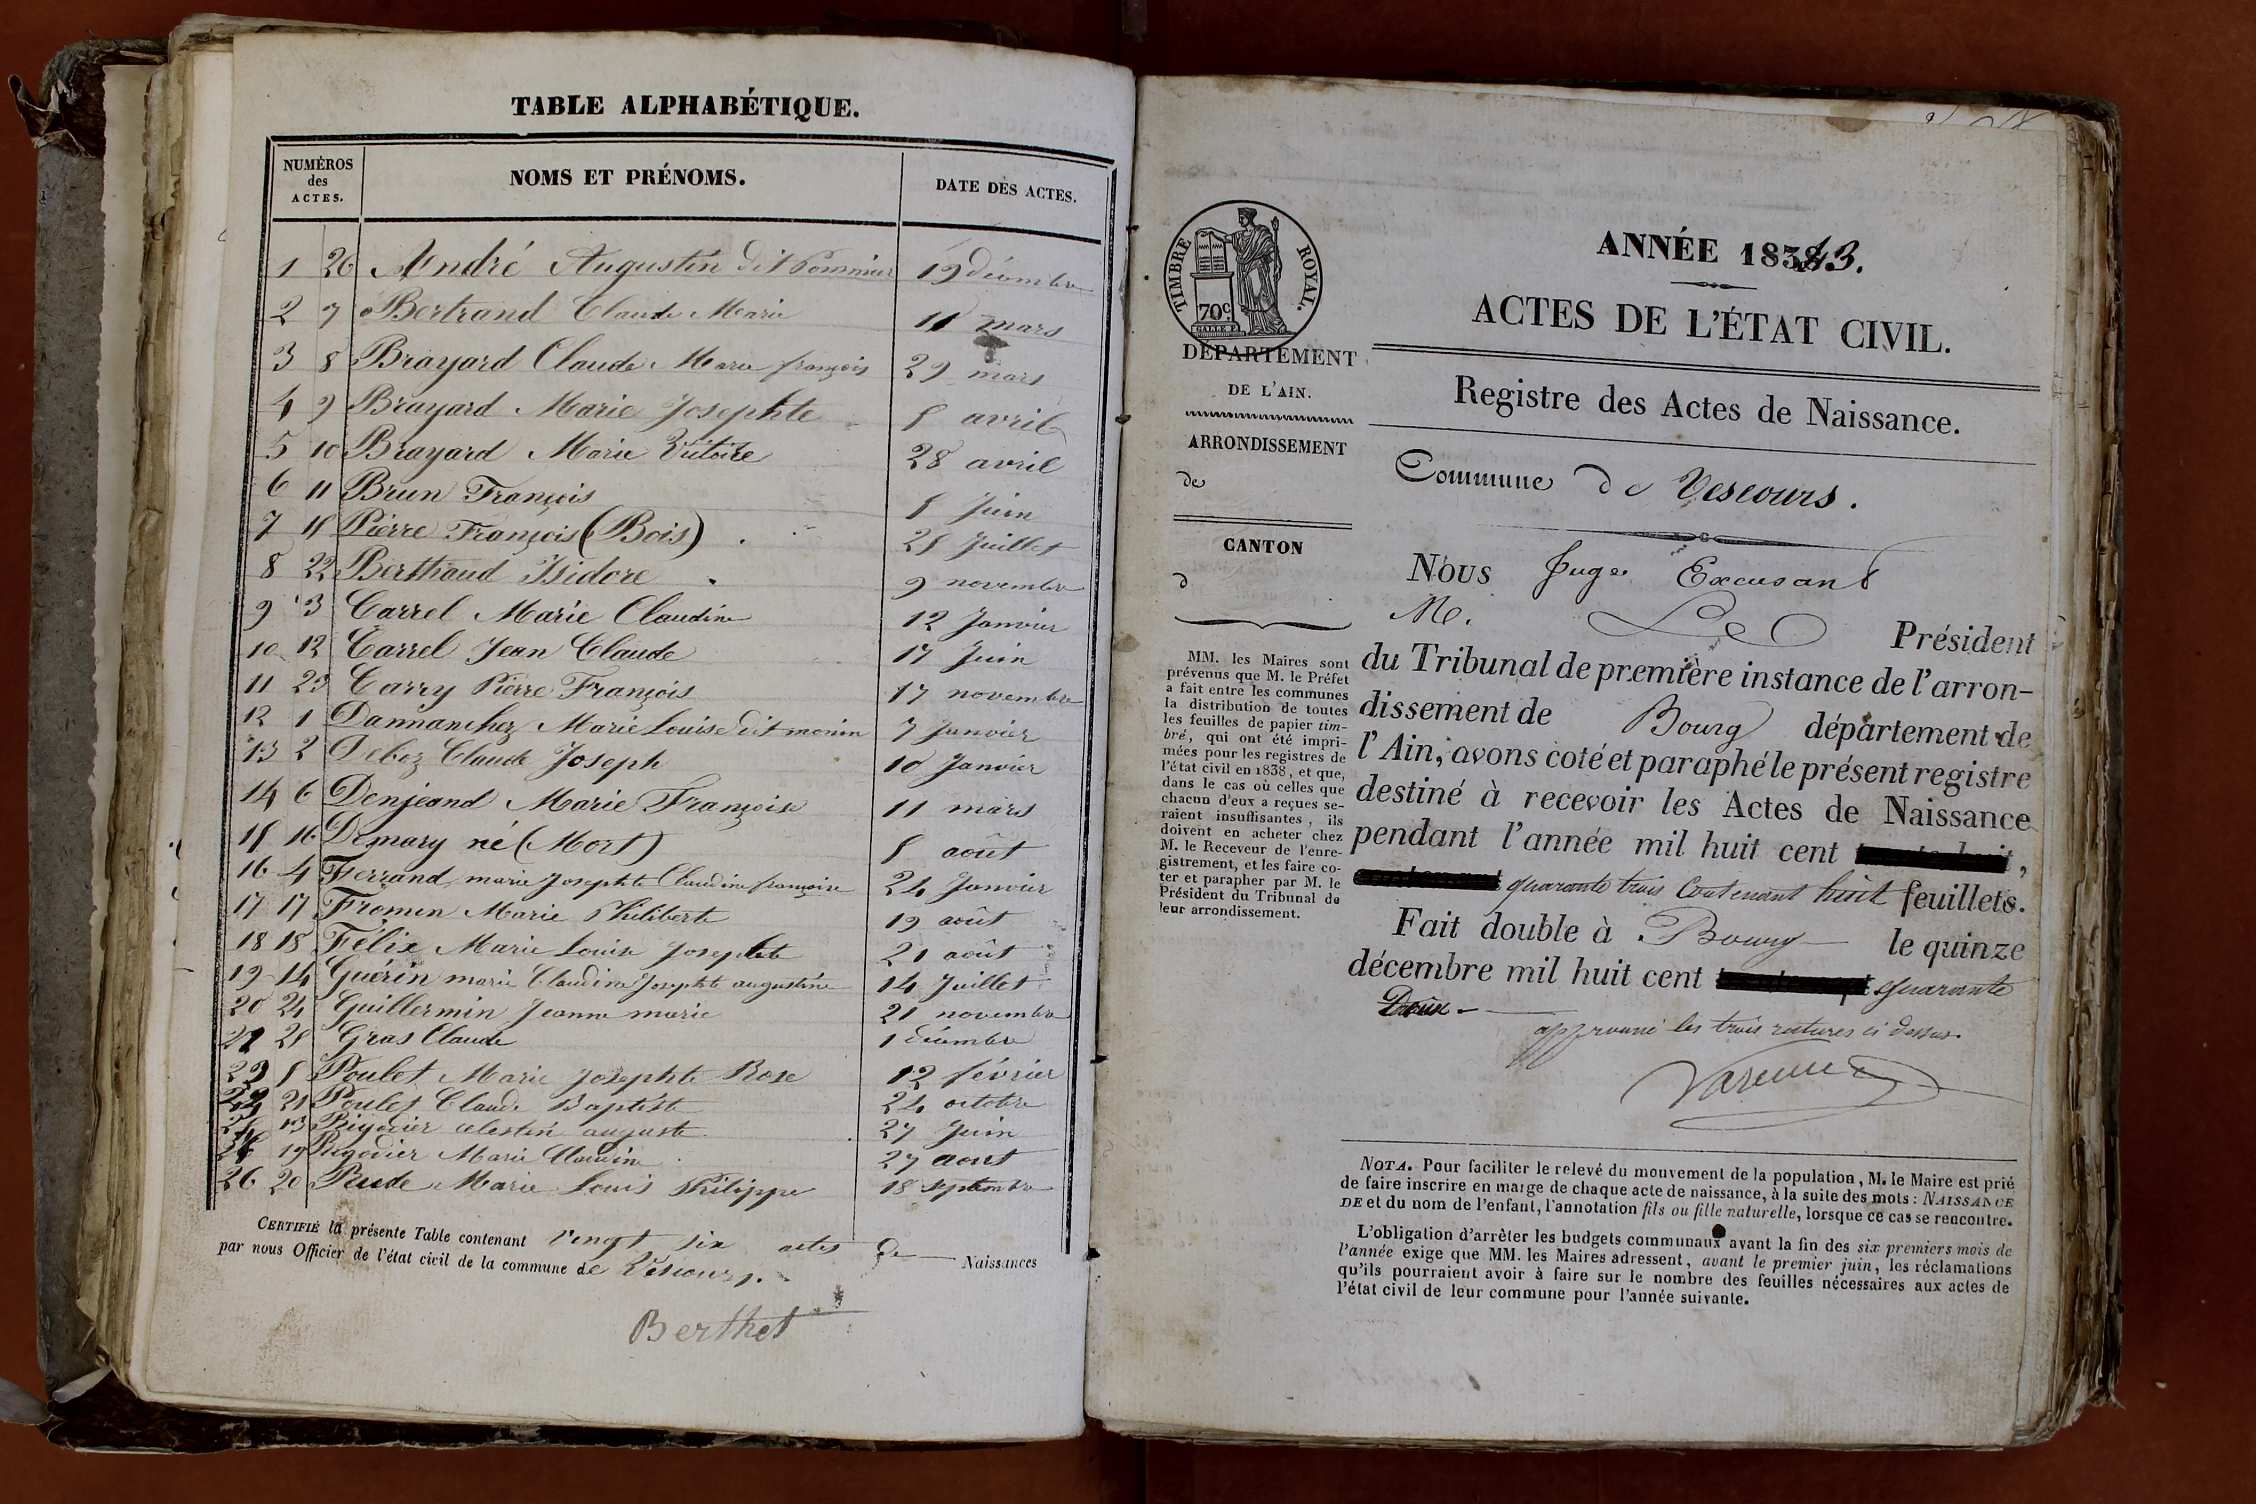 TABLE ALPHABÉTIQUE.
NUMÉROS des ACTES. NOMS ET PRÉNOMS. DATE DES ACTES.
1 26 André Augustin dit Pommier 19 décembre
2 7 Bertrand Claude Marie 11 mars
3 8 Brayard Claude Marie françois 29 mars
4 9 Brayard Marie Josephte 5 avril
5 10 Brayard Marie Victoire 28 avril
6 11 Brun François 5 Juin
7 15 Pierre François (Bois) 25 Juillet
8 22 Berthoud Isidore 9 novembre
9 3 Carrel Marie Claudine 12 Janvier
10 12 Carrel Jean Claude 17 Juin
11 23 Carry Pierre François 17 novembre
12 1 Dannanchez Marie Louise dit monin 7 Janvier
13 2 Deboz Claude Joseph 10 Janvier
14 6 Denjeand Marie Françoise 11 mars
15 16 Demary né (Mort) 5 août
16 4 Ferrand marie Josephte Claudine françoise 24 Janvier
17 17 Fromen Marie Philiberte 19 août
18 18 Félix Marie Louise Josephte 21 août
19 14 Guérin marie Claudine Josephte augustine 14 Juillet
20 24 Guillermin Jeanne marie 21 novembre
21 25 Gras Claude 1 décembre
22 5 Poulet Marie Josephte Rose 12 février
23 21 Poulet Claude Baptiste 24 octobre
24 13 celestin auguste 27 Juin
19 Marie Claudine 27 aout
26 20 Marie Louis Philippe 18 septembre
CERTIFIÉ la présente Table contenant vengt six actes de Naissances
par nous Officier de l'état civil de la commune de Vescours.
Berthet
TIMBRE ROYAL.
70c.
ANNÉE 183843.
ACTES DE L'ÉTAT CIVIL.
DÉPARTEMENT
DE L'AIN.
Registre des Actes de Naissance.
ARRONDISSEMENT
de
Commune de Vescours.
CANTON
d
Nous Juge Excusant
M. Le Président
du Tribunal de première instance de l'arron-
dissement de Bourg département de
l'Ain, avons coté et paraphé le présent registre
destiné à recevoir les Actes de Naissance
pendant l'année mil huit cent ,
quarante trois Contenant huit feuillets.
Fait double à Bourg le quinze
décembre mil huit cent quarante
Deux
approuvé les trois ratures ci dessus.
MM. les Maires sont
prévenus que M. le Préfet
a fait entre les communes
la distribution de toutes
les feuilles de papier tim-
bré, qui ont été impri-
mées pour les registres de
l'état civil en 1838, et que,
dans le cas où celles que
chacun d'eux a reçues se-
raient insuffisantes, ils
doivent en acheter chez
M. le Receveur de l'enre-
gistrement, et les faire co-
ter et parapher par M. le
Président du Tribunal de
leur arrondissement.
NOTA. Pour faciliter le relevé du mouvement de la population, M. le Maire est prié
de faire inscrire en marge de chaque acte de naissance, à la suite des mots : NAISSANCE
DE et du nom de l'enfant, l'annotation fils ou fille naturelle, lorsque ce cas se rencontre.
L'obligation d'arrêter les budgets communaux avant la fin des six premiers mois de
l'année exige que MM. les Maires adressent, avant le premier juin, les réclamations
qu'ils pourraient avoir à faire sur le nombre des feuilles nécessaires aux actes de
l'état civil de leur commune pour l'année suivante.